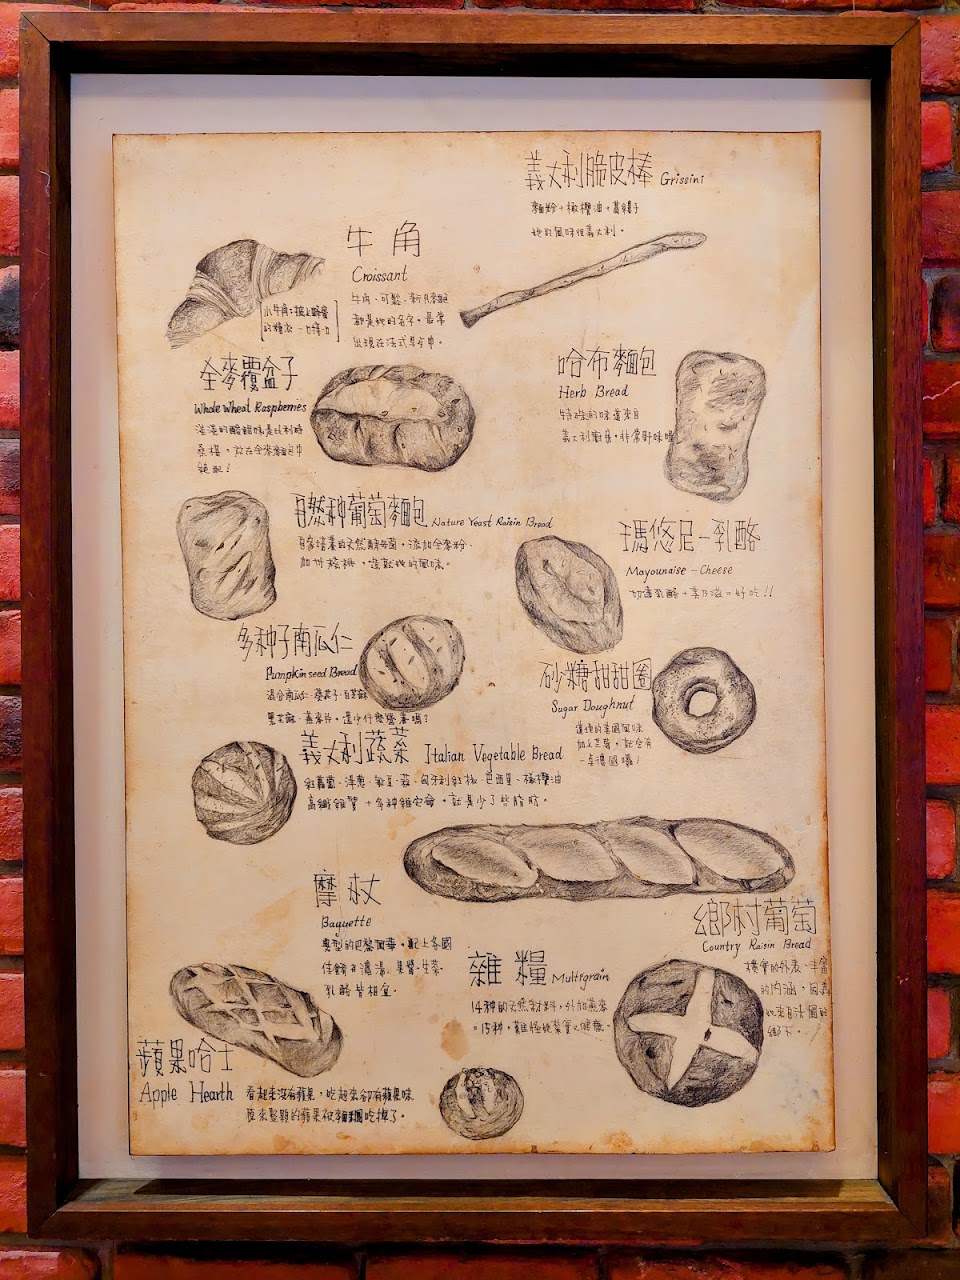 義大利脆皮棒 Grissini
麵粉+橄欖油+蒜頭子
她的風味很義大利。
牛角
Croissant
牛角、可鬆、新月麥包
都是她的名字。最常
出現在法式早午中。
小牛角:披上蜂蜜
的糖漿 一口接一口
全麥覆盆子
Whole Wheat Raspberries
淡淡的酸甜味是比利時
桑椹,放在全麥麵包中
絕配!
哈布麵包
Herb Bread
特殊的味道來自
義大利廚房。非常野味喔
自然种葡萄麵包 Nature Yeast Raisin Bread
自家培養的天然酵母菌,添加全麥粉、
加州核桃,造就她的風味。
瑪悠尼-乳酪
Mayounaise-Cheese
切達乳酪+美乃滋=好吃!!
多种子南瓜仁
Pumpkin seed Bread
混合南瓜仁、葵花子、白芝麻
黑芝麻、燕麥片,還少什麼營養嗎?
砂糖甜甜圈
Sugar Doughnut
道地的美國風味
加上芝麻,就會有
一
義大利蔬菜 Italian Vegetable Bread
紅蘿蔔、洋蔥、
匈牙利紅椒、巴西里、橄欖油
高纖維質+多种維它命,就是少了些脂肪。
摩杖
Baguette
典型的巴黎風華。配上各國
佳餚、濃湯、果醬、生菜、
乳酪皆相宜。
鄉村葡萄
Country Raisin Bread
樸實的外表、丰富
的內涵,因為
她來自法國的
鄉下。
雜糧 Multigrain
14种的天然材料,外加燕麥
=15种,難怪她紮實又健康。
蘋果哈士
Apple Hearth
看起來沒有蘋果,吃起來卻有蘋果味
原來整顆的蘋果被麵糰吃掉了。